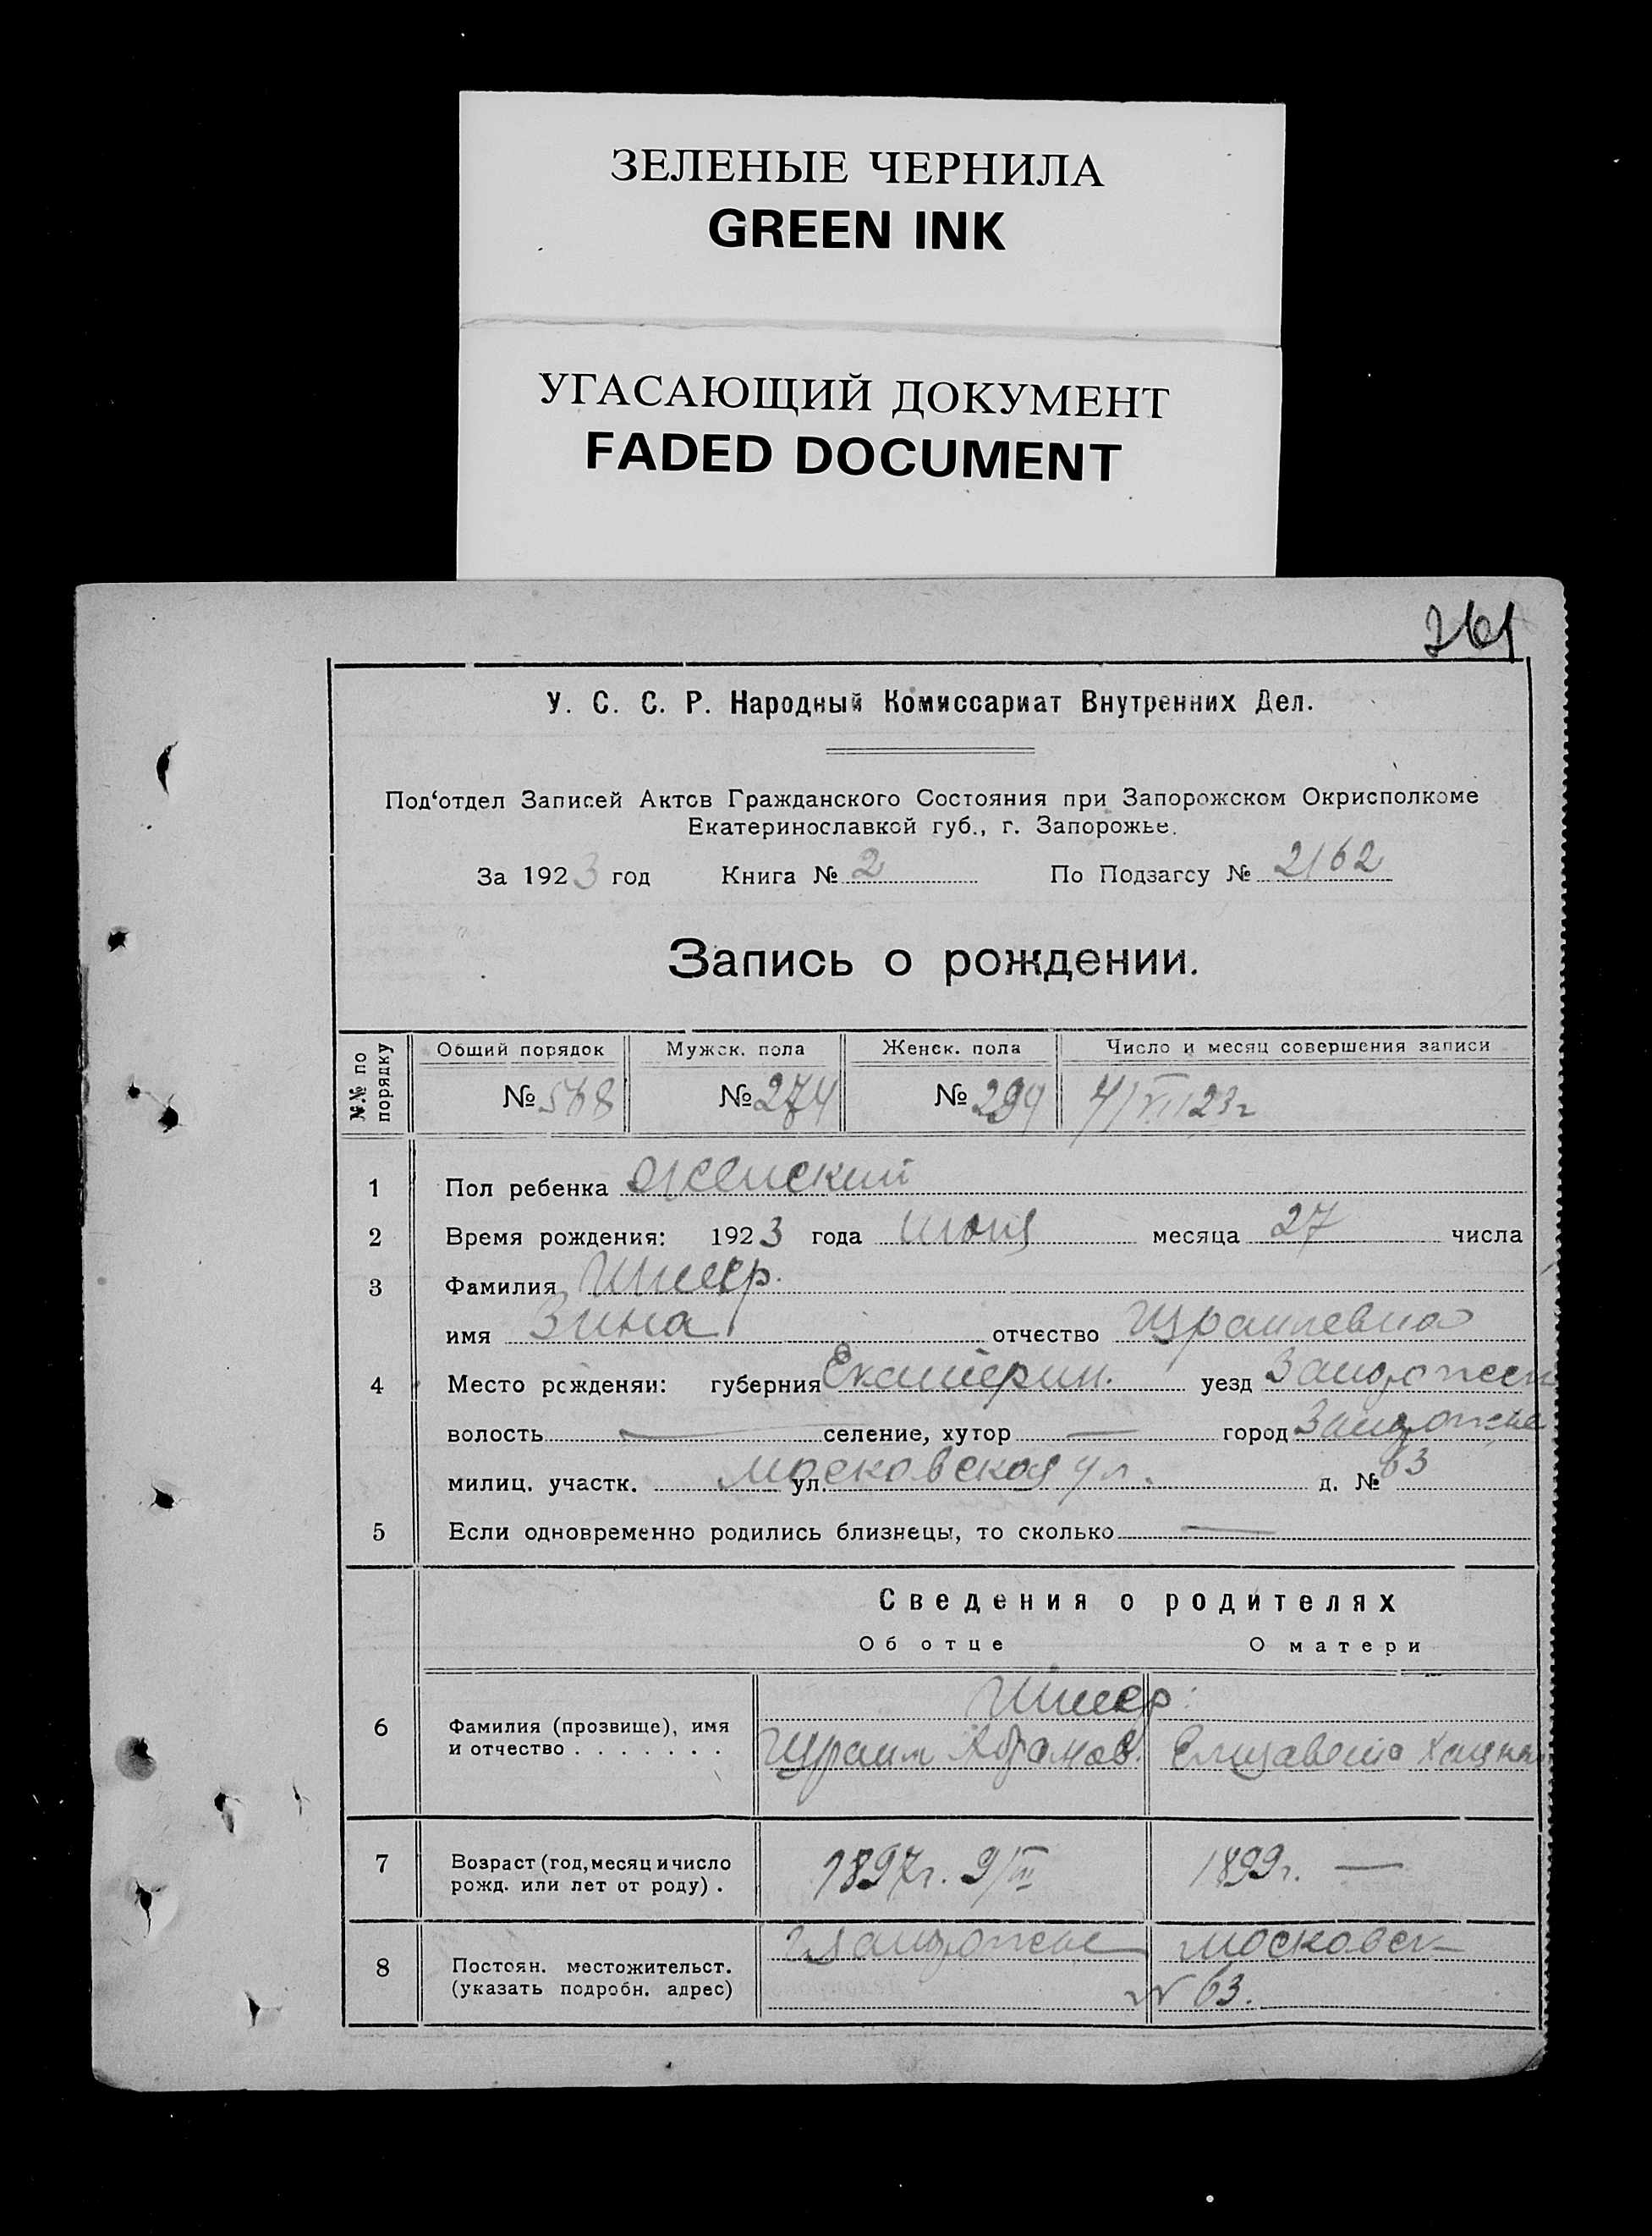 ЗЕЛЕНЫЕ ЧЕРНИЛА
GREEN INK
УГАСАЮЩИЙ ДОКУМЕНТ
FADED DOCUMENT
261
У. С. С. Р. Народный Комиссариат Внутренних Дел.
Под‘отдел Записей Актов Гражданского Состояния при Запорожском Окрисполкоме
Екатеринославкой губ., г. Запорожье.
За 1923 год Книга № 2 По Подзагсу № 2162
Запись о рождении.
№№ по порядку Общий порядок Мужск. пола Женск. пола Число и месяц совершения записи
№ 568 № 274 № 294 4/VII 23г
1 Пол ребенка Женский
2 Время рождения: 1923 года июня месяца 27 числа
3 Фамилия
имя Зина отчество Израилевна
4 Место рождении: губерния Екатерин. уезд
волость — селение, хутор — город Запорожье
милиц. участк. ул. Московская ул. д. № 63
5 Если одновременно родились близнецы, то сколько —
Сведения о родителях
Об отце О матери
6 Фамилия (прозвище), имя
и отчество . . . . . . . Израил Абрамов. Елизавета
7 Возраст (год, месяц и число
рожд. или лет от роду) . 1897г. 1899г. —
8 Постоян. местожительст. Московск
(указать подробн. адрес) № 63.